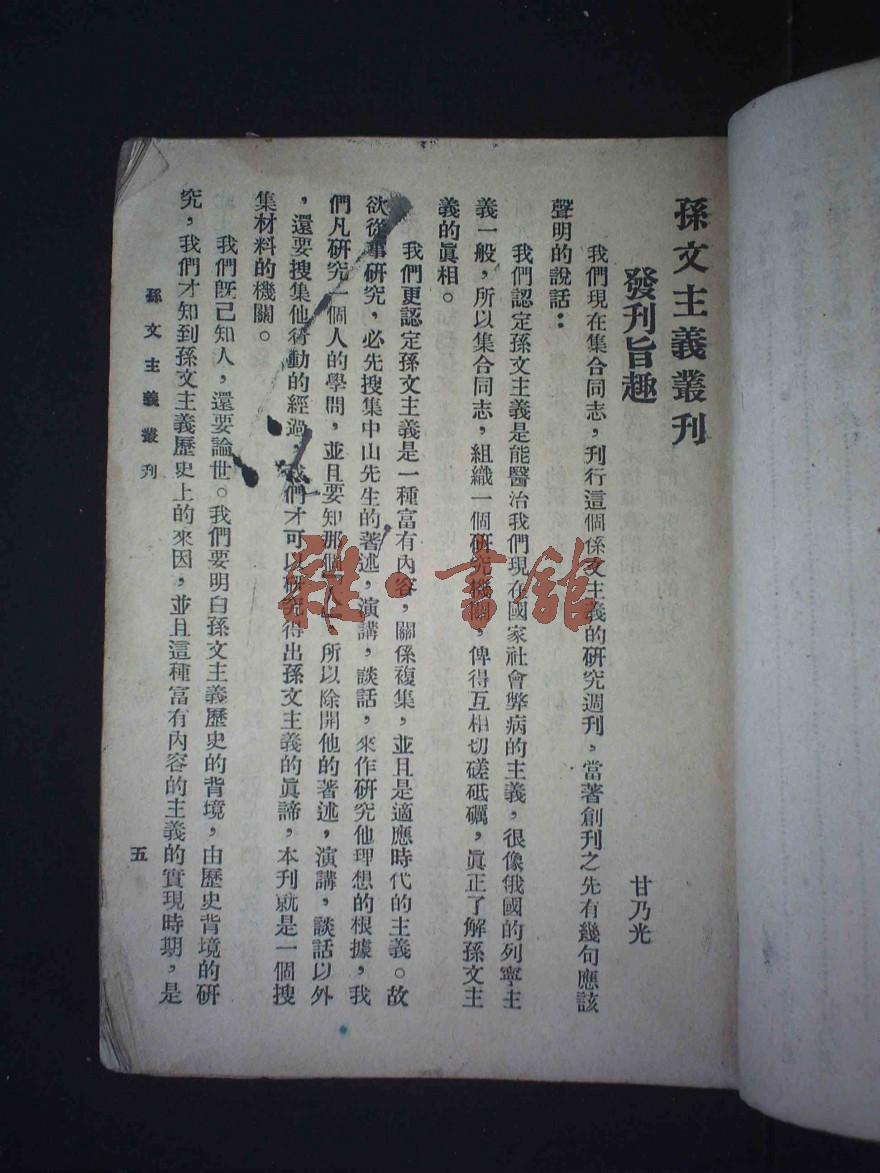 孫文主義叢刊
發刊旨趣
甘乃光
我們現在集合同志，刊行這個孫文主義的研究週刊，當著創刊之先有幾句應該
聲明的說話：
我們認定孫文主義是能醫治我們現在國家社會弊病的主義，很像俄國的列寧主
義一般，所以集合同志，組織一個研究機關，俾得互相切磋砥礪，眞正了解孫文主
義的眞相。
我們更認定孫文主義是一種富有內容，關係複集，並且是適應時代的主義。故
欲從事研究，必先搜集中山先生的著述，演講，談話，來作研究他理想的根據，我
們凡研究一個人的學問，並且要知那個「人」，所以除開他的著述，演講，談話以外
，還要搜集他行動的經過，我們才可以研究得出孫文主義的眞諦，本刊就是一個搜
集材料的機關。
我們旣已知人，還要論世。我們要明白孫文主義歷史的背境，由歷史背境的研
究，我們才知到孫文主義歷史上的來因，並且這種富有內容的主義的實現時期，是
孫文主義叢刊
五
雜·書館